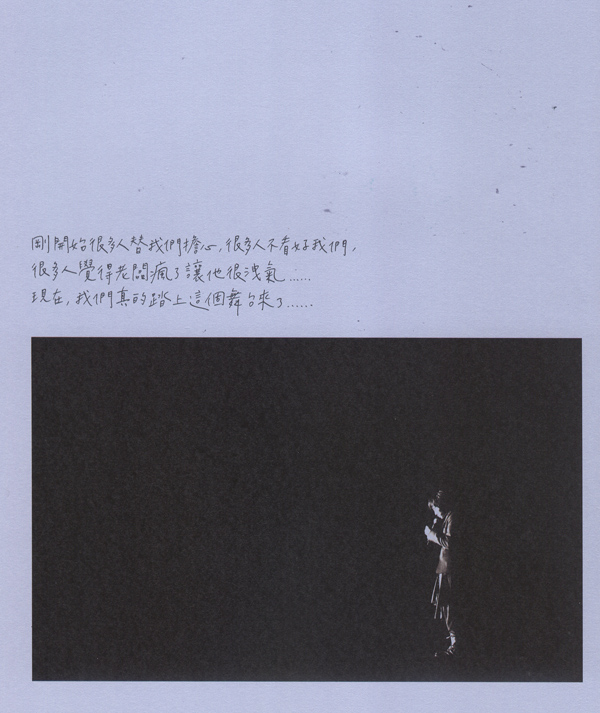 剛開始很多人替我們擔心,很多人不看好我們,
很多人覺得老闆瘋了讓他很洩氣......
現在,我們真的踏上這個舞台來了......